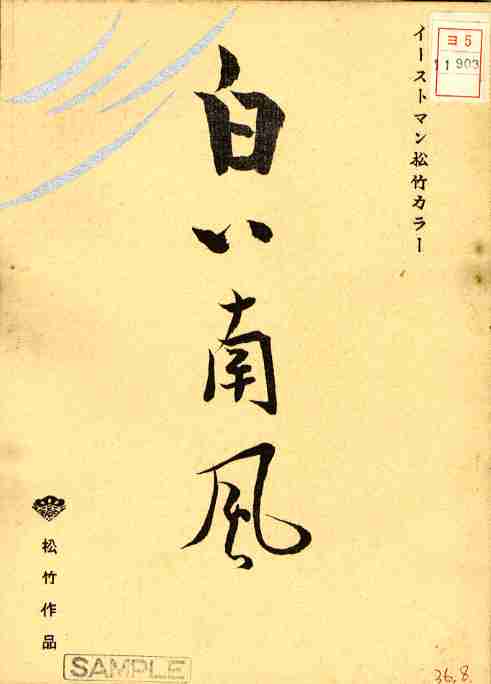 イーストマン松竹カラー
ヨ5
11903
白い南風
松竹作品
SAMPLE
36.8.